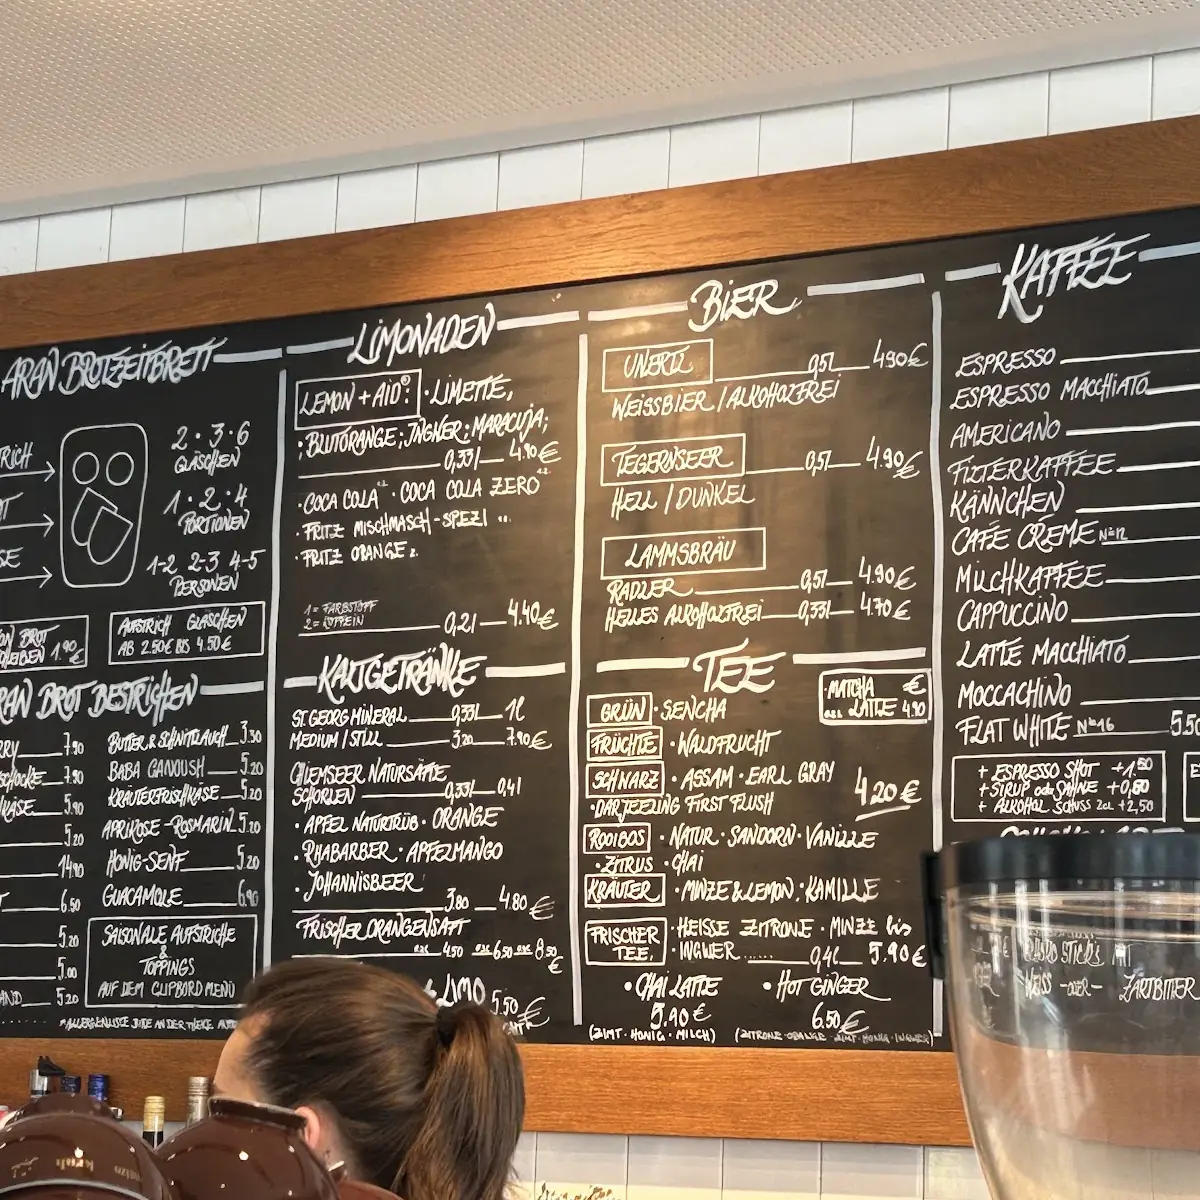 ARAN BROTZEITBRETT
2 · 3 · 6
GLÄSCHEN
1 · 2 · 4
PORTIONEN
1-2 2-3 4-5
PERSONEN
BROT 1.90 €
AUFSTRICH GLÄSCHEN
AB 2.50€ BIS 4.50€
BROT BESTRICHEN
7.90
7.90
5.90
5.20
14.90
6.50
5.20
5.00
5.20
BUTTER & SCHNITTLAUCH 3.30
BABA GANOUSH 5.20
KRÄUTERFRISCHKÄSE 5.20
APRIKOSE-ROSMARIN 5.20
HONIG-SENF 5.20
GUACAMOLE 6.90
SAISONALE AUFSTRICHE
&
TOPPINGS
AUF DEM CLIPBORD MENÜ
LIMONADEN
LEMON + AID: · LIMETTE,
; BLUTORANGE; INGWER; MARACUJA;
0,33l 4.90 €
· COCA COLA · COCA COLA ZERO
· FRITZ MISCHMASCH-SPEZI
· FRITZ ORANGE
1 = FARBSTOFF
2 = KOFFEIN
0,2l 4.40€
KALTGETRÄNKE
ST. GEORG MINERAL 0,33l 1l
MEDIUM / STILL 3.20 7.90€
CHIEMSEER NATURSÄFTE
SCHORLEN 0,33l 0,4l
· APFEL NATURTRÜB · ORANGE
· RHABARBER · APFELMANGO
· JOHANNISBEER
3.80 4.80 €
FRISCHER ORANGENSAFT
4.50 6.50 8.50 €
LIMO 5.50 €
BIER
UNERTL 0,5l 4.90€
WEISSBIER / ALKOHOLFREI
TEGERNSEER 0,5l 4.90€
HELL / DUNKEL
LAMMSBRÄU
RADLER 0,5l 4.90€
HELLES ALKOHOLFREI 0,33l 4.70€
TEE
MATCHA €
LATTE 4.90
GRÜN · SENCHA
FRÜCHTE · WALDFRUCHT
SCHWARZ · ASSAM · EARL GRAY
· DARJEELING FIRST FLUSH
4.20 €
ROOIBOS · NATUR · SANDORN · VANILLE
· ZITRUS · CHAI
KRÄUTER · MINZE & LEMON · KAMILLE
FRISCHER TEE, · HEISSE ZITRONE · MINZE bis
· INGWER ...... 0,4l 5.90€
· CHAI LATTE
5.90 €
(ZIMT · HONIG · MILCH)
· HOT GINGER
6.50€
(ZITRONE · ORANGE · ZIMT · HONIG · INGWER)
KAFFEE
ESPRESSO
ESPRESSO MACCHIATO
AMERICANO
FILTERKAFFEE
KÄNNCHEN
CAFÉ CREME N=12
MILCHKAFFEE
CAPPUCCINO
LATTE MACCHIATO
MOCCACHINO
FLAT WHITE N=16 5.50
+ ESPRESSO SHOT +1.50
+ SIRUP oda SAHNE +0,80
+ ALKOHOL SCHUSS 2cl +2,50
WEISS -ODER- ZARTBITTER